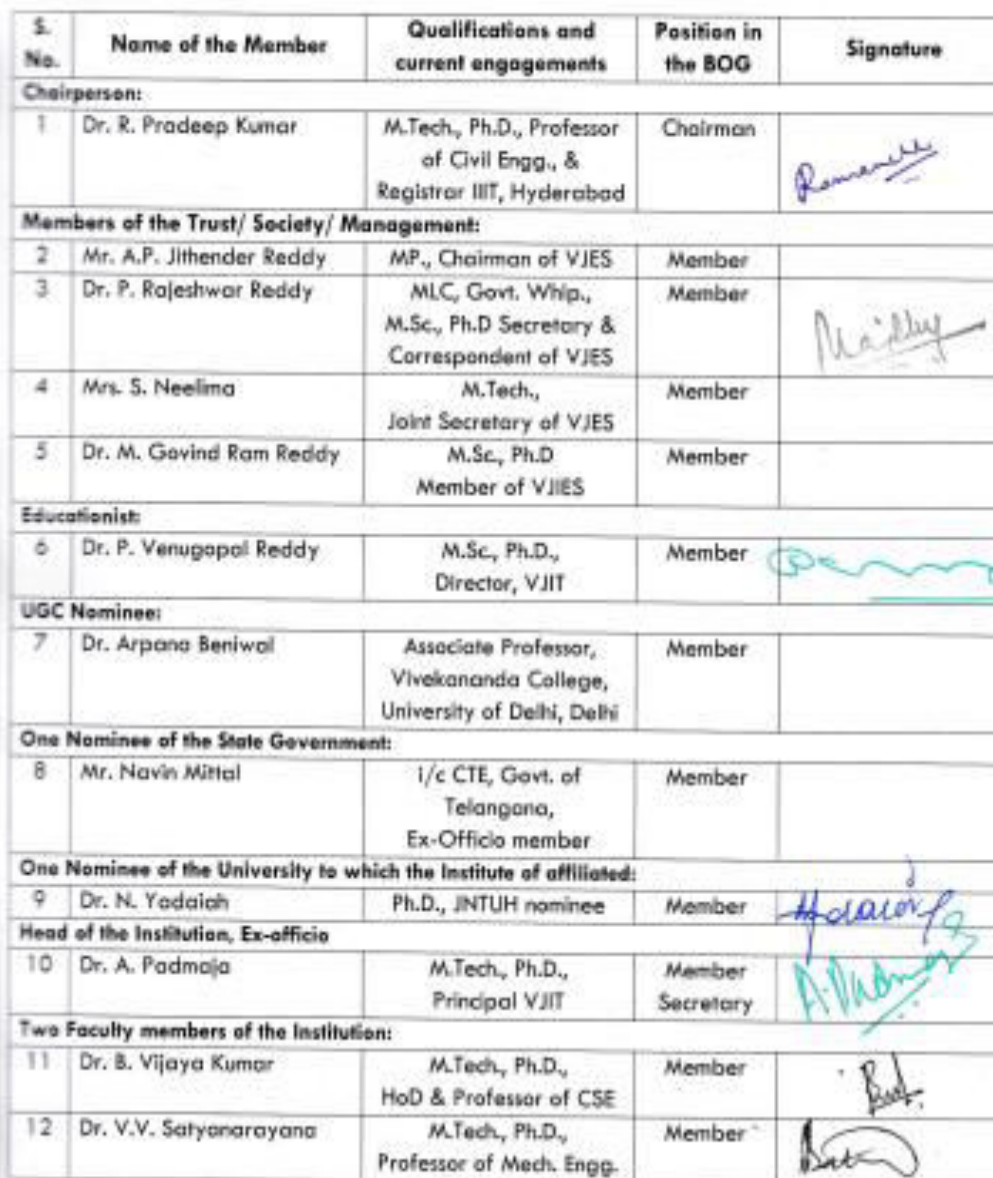 S. No. Name of the Member Qualifications and current engagements Position in the BOG Signature
Chairperson:
1 Dr. R. Pradeep Kumar M.Tech., Ph.D., Professor Chairman
of Civil Engg., &
Registrar IIIT, Hyderabad
Members of the Trust/ Society/ Management:
2 Mr. A.P. Jithender Reddy MP., Chairman of VJES Member
3 Dr. P. Rajeshwar Reddy MLC, Govt. Whip., Member
M.Sc., Ph.D Secretary &
Correspondent of VJES
4 Mrs. S. Neelima M.Tech., Member
Joint Secretary of VJES
5 Dr. M. Govind Ram Reddy M.Sc., Ph.D Member
Member of VJIES
Educationist:
6 Dr. P. Venugopal Reddy M.Sc., Ph.D., Member
Director, VJIT
UGC Nominee:
7 Dr. Arpana Beniwal Associate Professor, Member
Vivekananda College,
University of Delhi, Delhi
One Nominee of the State Government:
8 Mr. Navin Mittal i/c CTE, Govt. of Member
Telangana,
Ex-Officio member
One Nominee of the University to which the Institute of affiliated:
9 Dr. N. Yadaiah Ph.D., JNTUH nominee Member
Head of the Institution, Ex-officio
10 Dr. A. Padmaja M.Tech., Ph.D., Member
Principal VJIT Secretary
Two Faculty members of the Institution:
11 Dr. B. Vijaya Kumar M.Tech., Ph.D., Member
HoD & Professor of CSE
12 Dr. V.V. Satyanarayana M.Tech., Ph.D., Member
Professor of Mech. Engg.